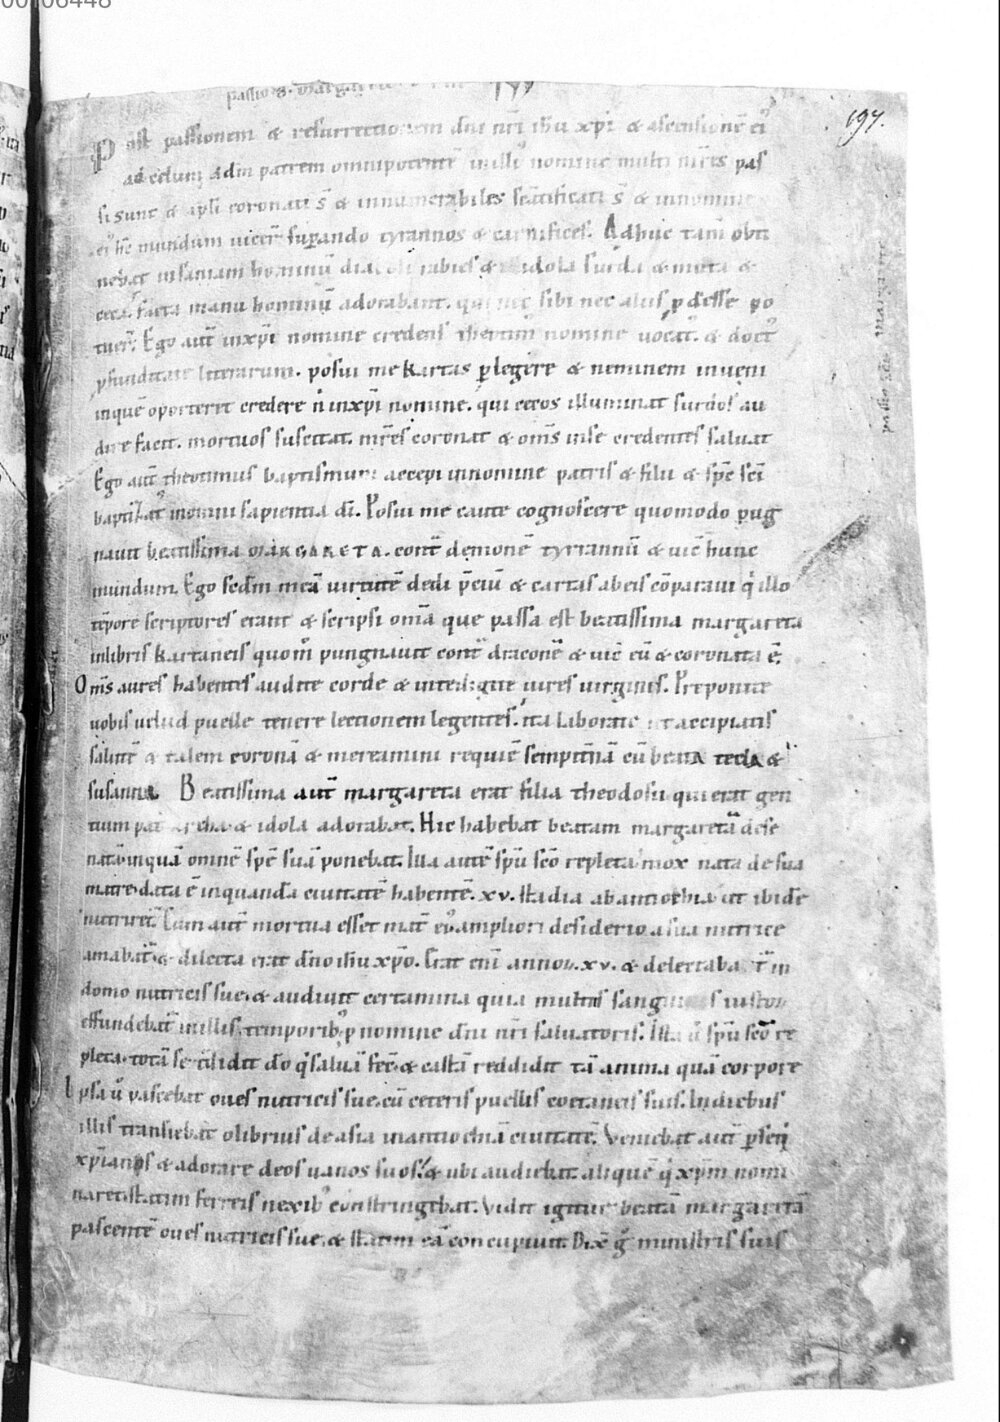 00106448
197.
Post passionem & resurrectionem dn̄i nr̄i ih̄u xp̄i & ascensionē ei᾽
ad celum ad dm̄ patrem omnipotentē illi᾽ nomine multi mr̄es pas
si sunt & apl̄i coronati s̄ & innumerabiles sc̄tificati s̄ & in nomine
mundum uicer̄ superando tyrannos & carnifices. Adhuc tam̄ obti
nebat insaniam hominū rabies & idola surda & muta &
ceca facta manu hominū adorabant. que nec sibi nec aliis ꝑdesse po
tuer̄. Ego aut̄ in xp̄i nomine credens theotim nomine uocat᾽. & doct᾽
ꝓfunditate literarum. posui me kartas ꝑlegere & neminem inueni
in quē oporteret credere n̄ in xp̄i nomine. qui cecos illuminat surdos au
dire facit. mortuos suscitat. mr̄es coronat & om̄s in se credentes saluat
Ego aut̄ theotimus baptismum accepi in nomine patris & filii & sp̄c sc̄i
baptizat᾽ sapientia dī. Posui me caute cognoscere quomodo pug
nauit beatissima MARGARETA. cont̄ demonē tyrrannū & uic̄ hunc
mundum. Ego sedm̄ meā uirtutē dedi p̄ciū & cartas ab eis cōparaui q̄ illo
tēpore scriptores erant & scripsi om̄a que passa est beatissima margareta
in libris kartaneis quom̄ pungnauit cont̄ draconē & uic̄ eū & coronata ē.
Om̄s aures habentes audite corde & intelligite uires uirginis. Preponite
uobis uelud puelle tenere lectionem legentes. ita laborate ut accipiatis
salutē & talem coronā & mereamini requiē sempit̄nā cū beata tecla &
susanna Beatissima aut̄ margareta erat filia theodosii qui erat gen
tium & idola adorabat. Hic habebat beatam margaretā de se
natā in quā omnē spē suā ponebat. Illa autē sp̄u sc̄o repleta mox nata de sua
matre data ē in quandā ciuitatē habentē .xv. stadia ab antiochia ut ibidē
nutriret᾽. Cum aut̄ mortua esset mat̄ ei᾽ ampliori desiderio a sua nutrice
amabat᾽ & dilecta erat dn̄o ih̄u xp̄o. Erat eni annoꝝ .xv. & delectabat᾽ in
domo nutricis sue. & audiuit certamina quia multus sanguis iustoꝝ
effundebat᾽ in illis temporib᾽ ꝓ nomine dn̄i nr̄i saluatoris. Illa ū sp̄u sc̄o re
pleta totā se tdidit dō q̄ saluā fec̄ & castā reddidit tā anima quā corpore
Ipsa ū pascebat oues nutricis sue cū ceteris puellis coetaneis suis. In diebus
illis transiebat olibrius de asia in antiochiā ciuitatē. Veniebat aut̄ ꝑseq̄
xp̄ianos & adorare deos uanos suos. & ubi audiebat aliquē q̄ xp̄m nomi
naret statim ferreis nexib᾽ constringebat. Vidit igitur beatā margaritā
pascentē oues nutricis sue. & statim eā concupiuit. Dix̄ g̊ ministris suis